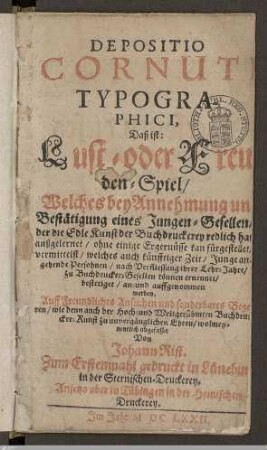 DEPOSITIO
CORNUT
TYPOGRA-
PHICI,
Daß ist:
Lust- oder Freu
den-Spiel/
Welches bey Annehmung un
Bestätigung eines Jungen-Gesellen/
der die Edle Kunst der Buchdruckerey redlich hat
außgelernet / ohne einige Ergernüsse kan fürgestellet/
vermittelst / welches auch künfftiger Zeit / Junge an-
gehende Persohnen / nach Verfliessung ihrer Lehr-Jahre/
zu Buchdrucker-Gesellen können ernennet/
bestetiget / an- und auffgenommen
werden.
Auff freundliches Ansuchen und sonderbares Bege
ren / wie denn auch der Hoch- und Weltgerühmten Buchdru
cker-Kunst zu unvergänglichen Ehren / wolmey-
nentlich abgefasset
Von
Johann Rist.
Zum Erstenmahl gedruckt in Lüneb
in der Sternischen-Druckerey,
Anjetzo aber in Tübingen in der
Druckerey.
Im Jahr M DC LXXII.